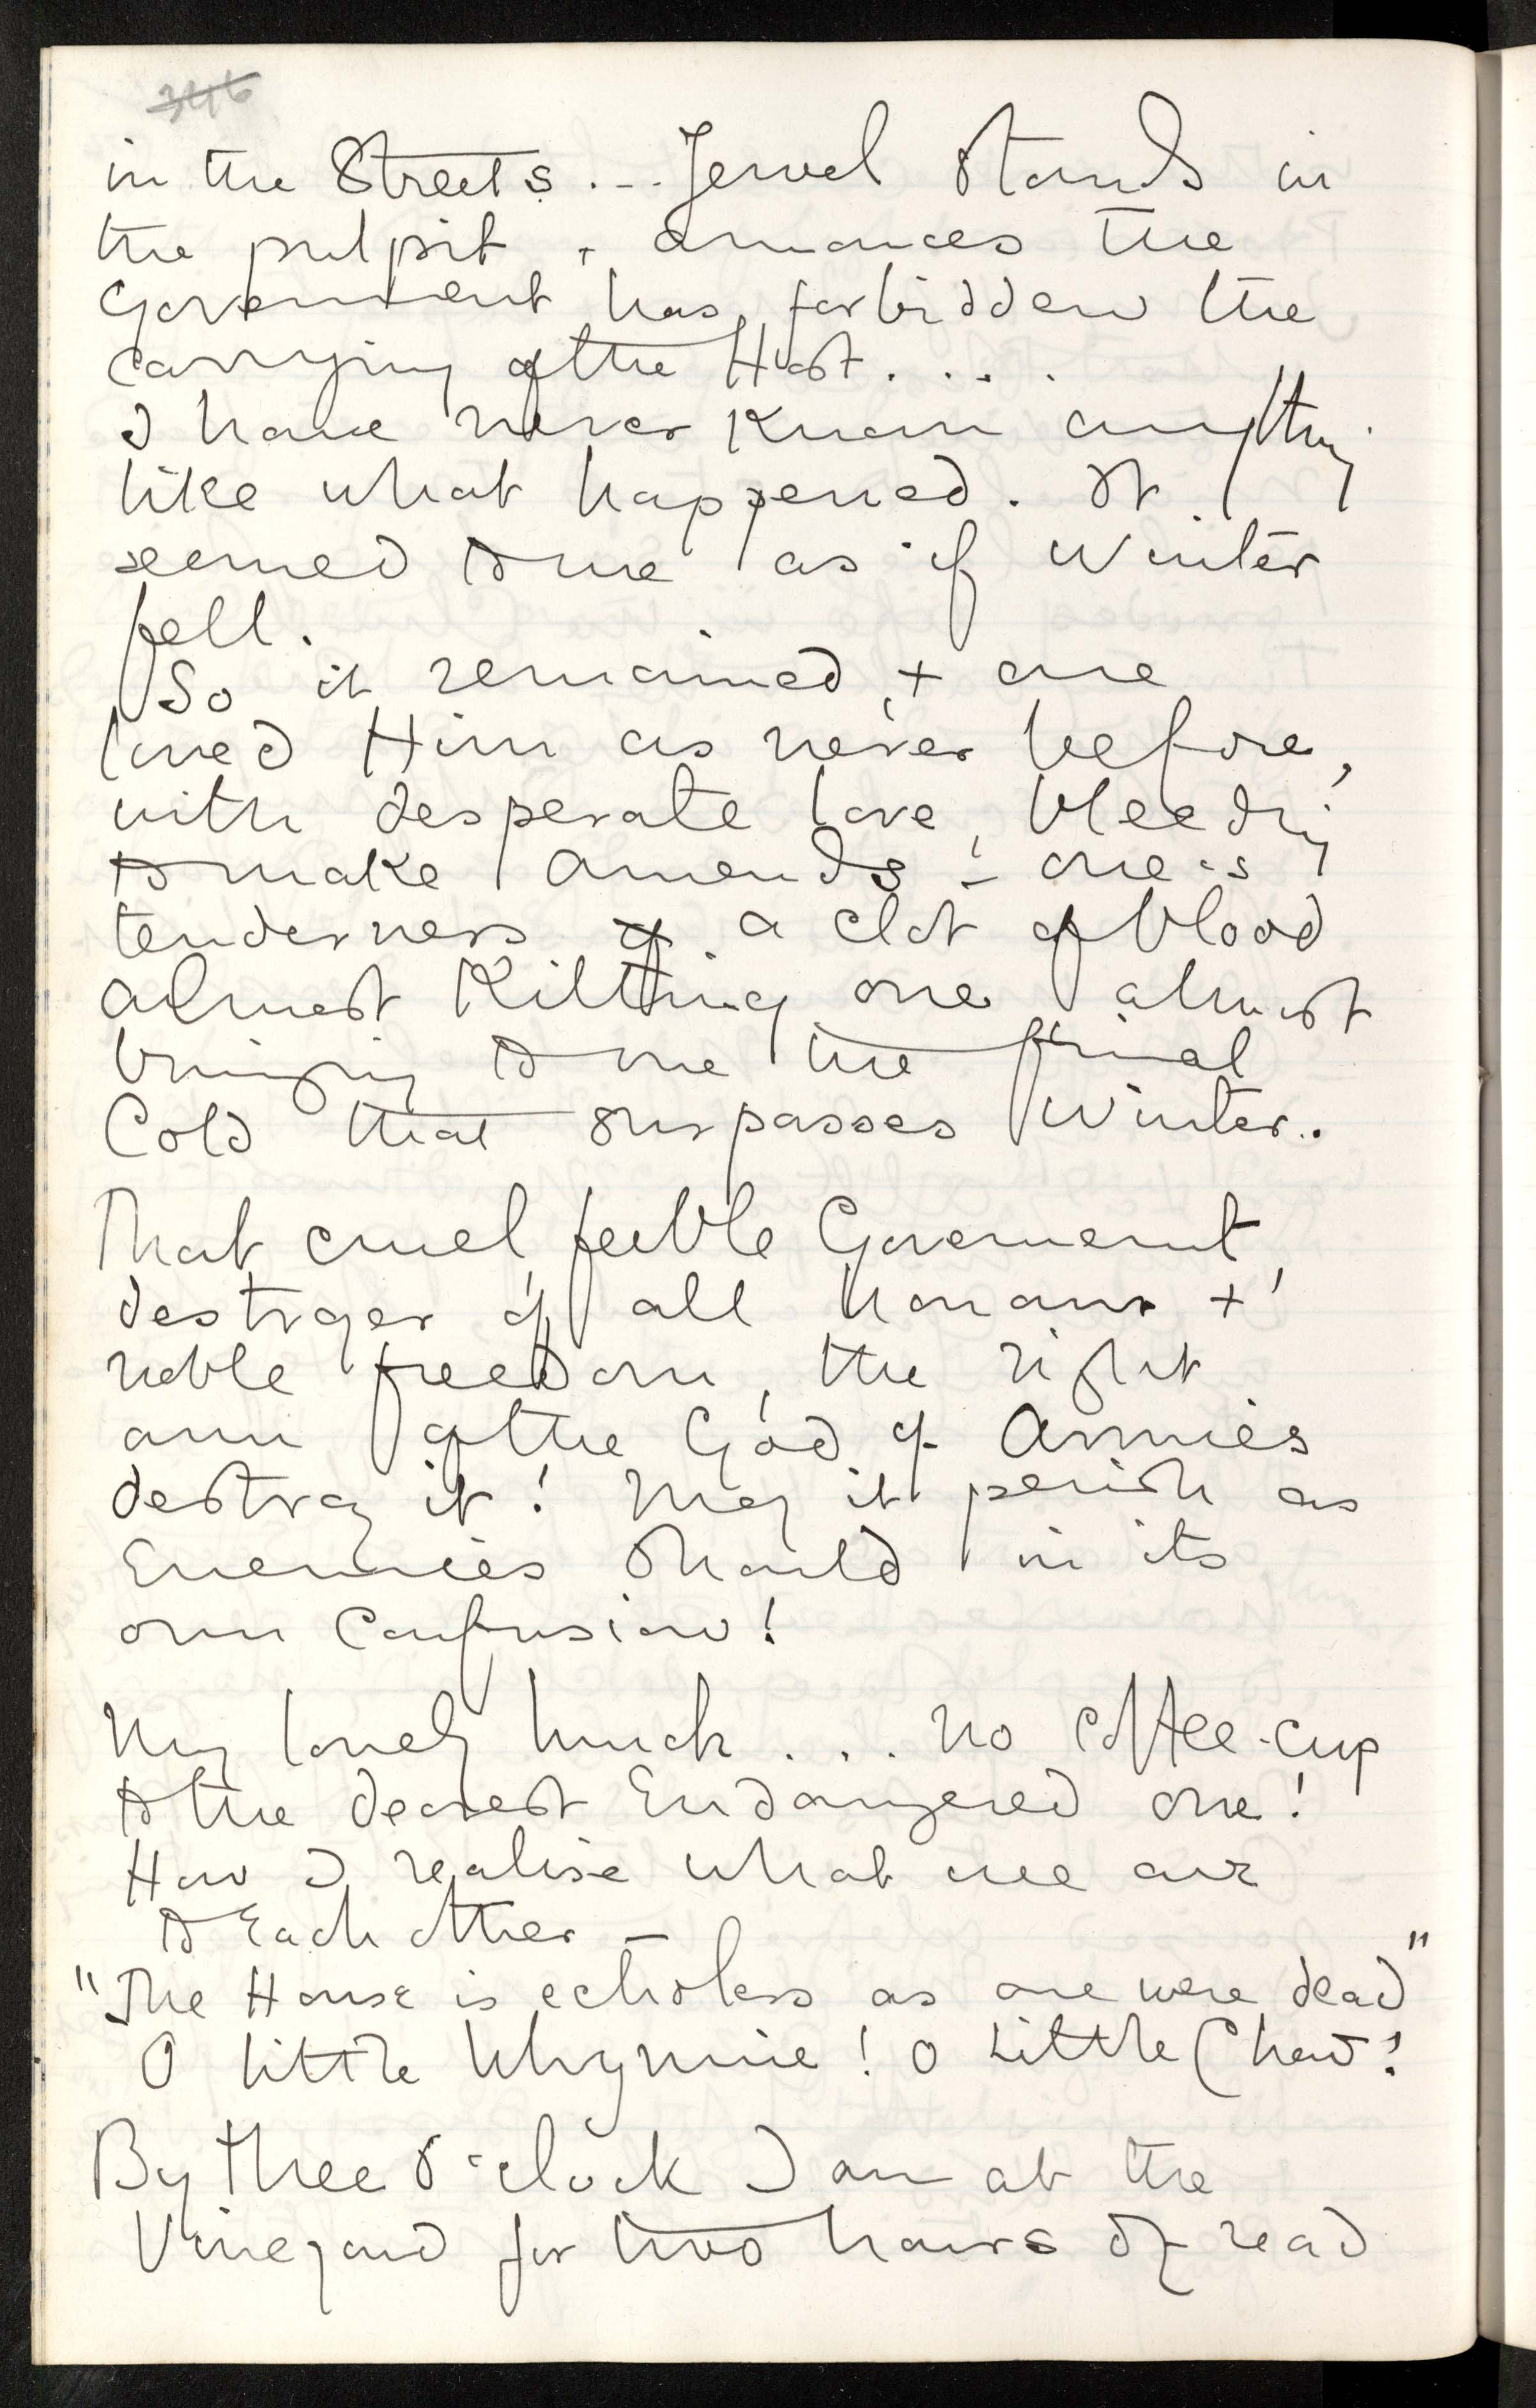 346
in the Streets... Jewel stands in
the pulpit + announces the
Government has forbidden the
carrying of the Host. . . .
I have never known anything
like what happened. It
seemed to me as if Winter
fell.
So it remained, + one
loved Him as never before,
with desperate love, bleeding
to make amends - one's
tenderness a clot of blood
almost killing one, almost
bringing to one the final
Cold that surpasses Winter.
That cruel, feeble Government,
destroyer of all honour +
noble freedom, the right
arm of the God of Armies
destroy it! May it perish as
Enemies should in its
own Confusion!
My lonely lunch . . . no coffee-cup
to the dearest Endangered one!
How I realise what we are
to Each other –
"The House is echoless as one were dead"
O little Whymie! O Little Chow!
By three o'clock I am at the
Vineyard for two hours of read